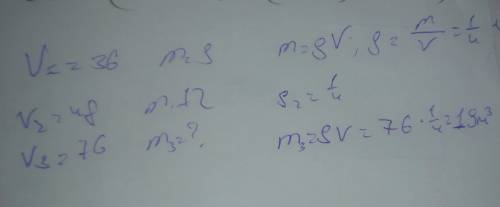 V₁ = 36 m = 9 m = ρV; ρ = m/V = 1/4
V₂ = 48 m = 12 ρ₂ = 1/4
V₃ = 76 m₃ = ? m₃ = ρV = 76 · 1/4 = 19